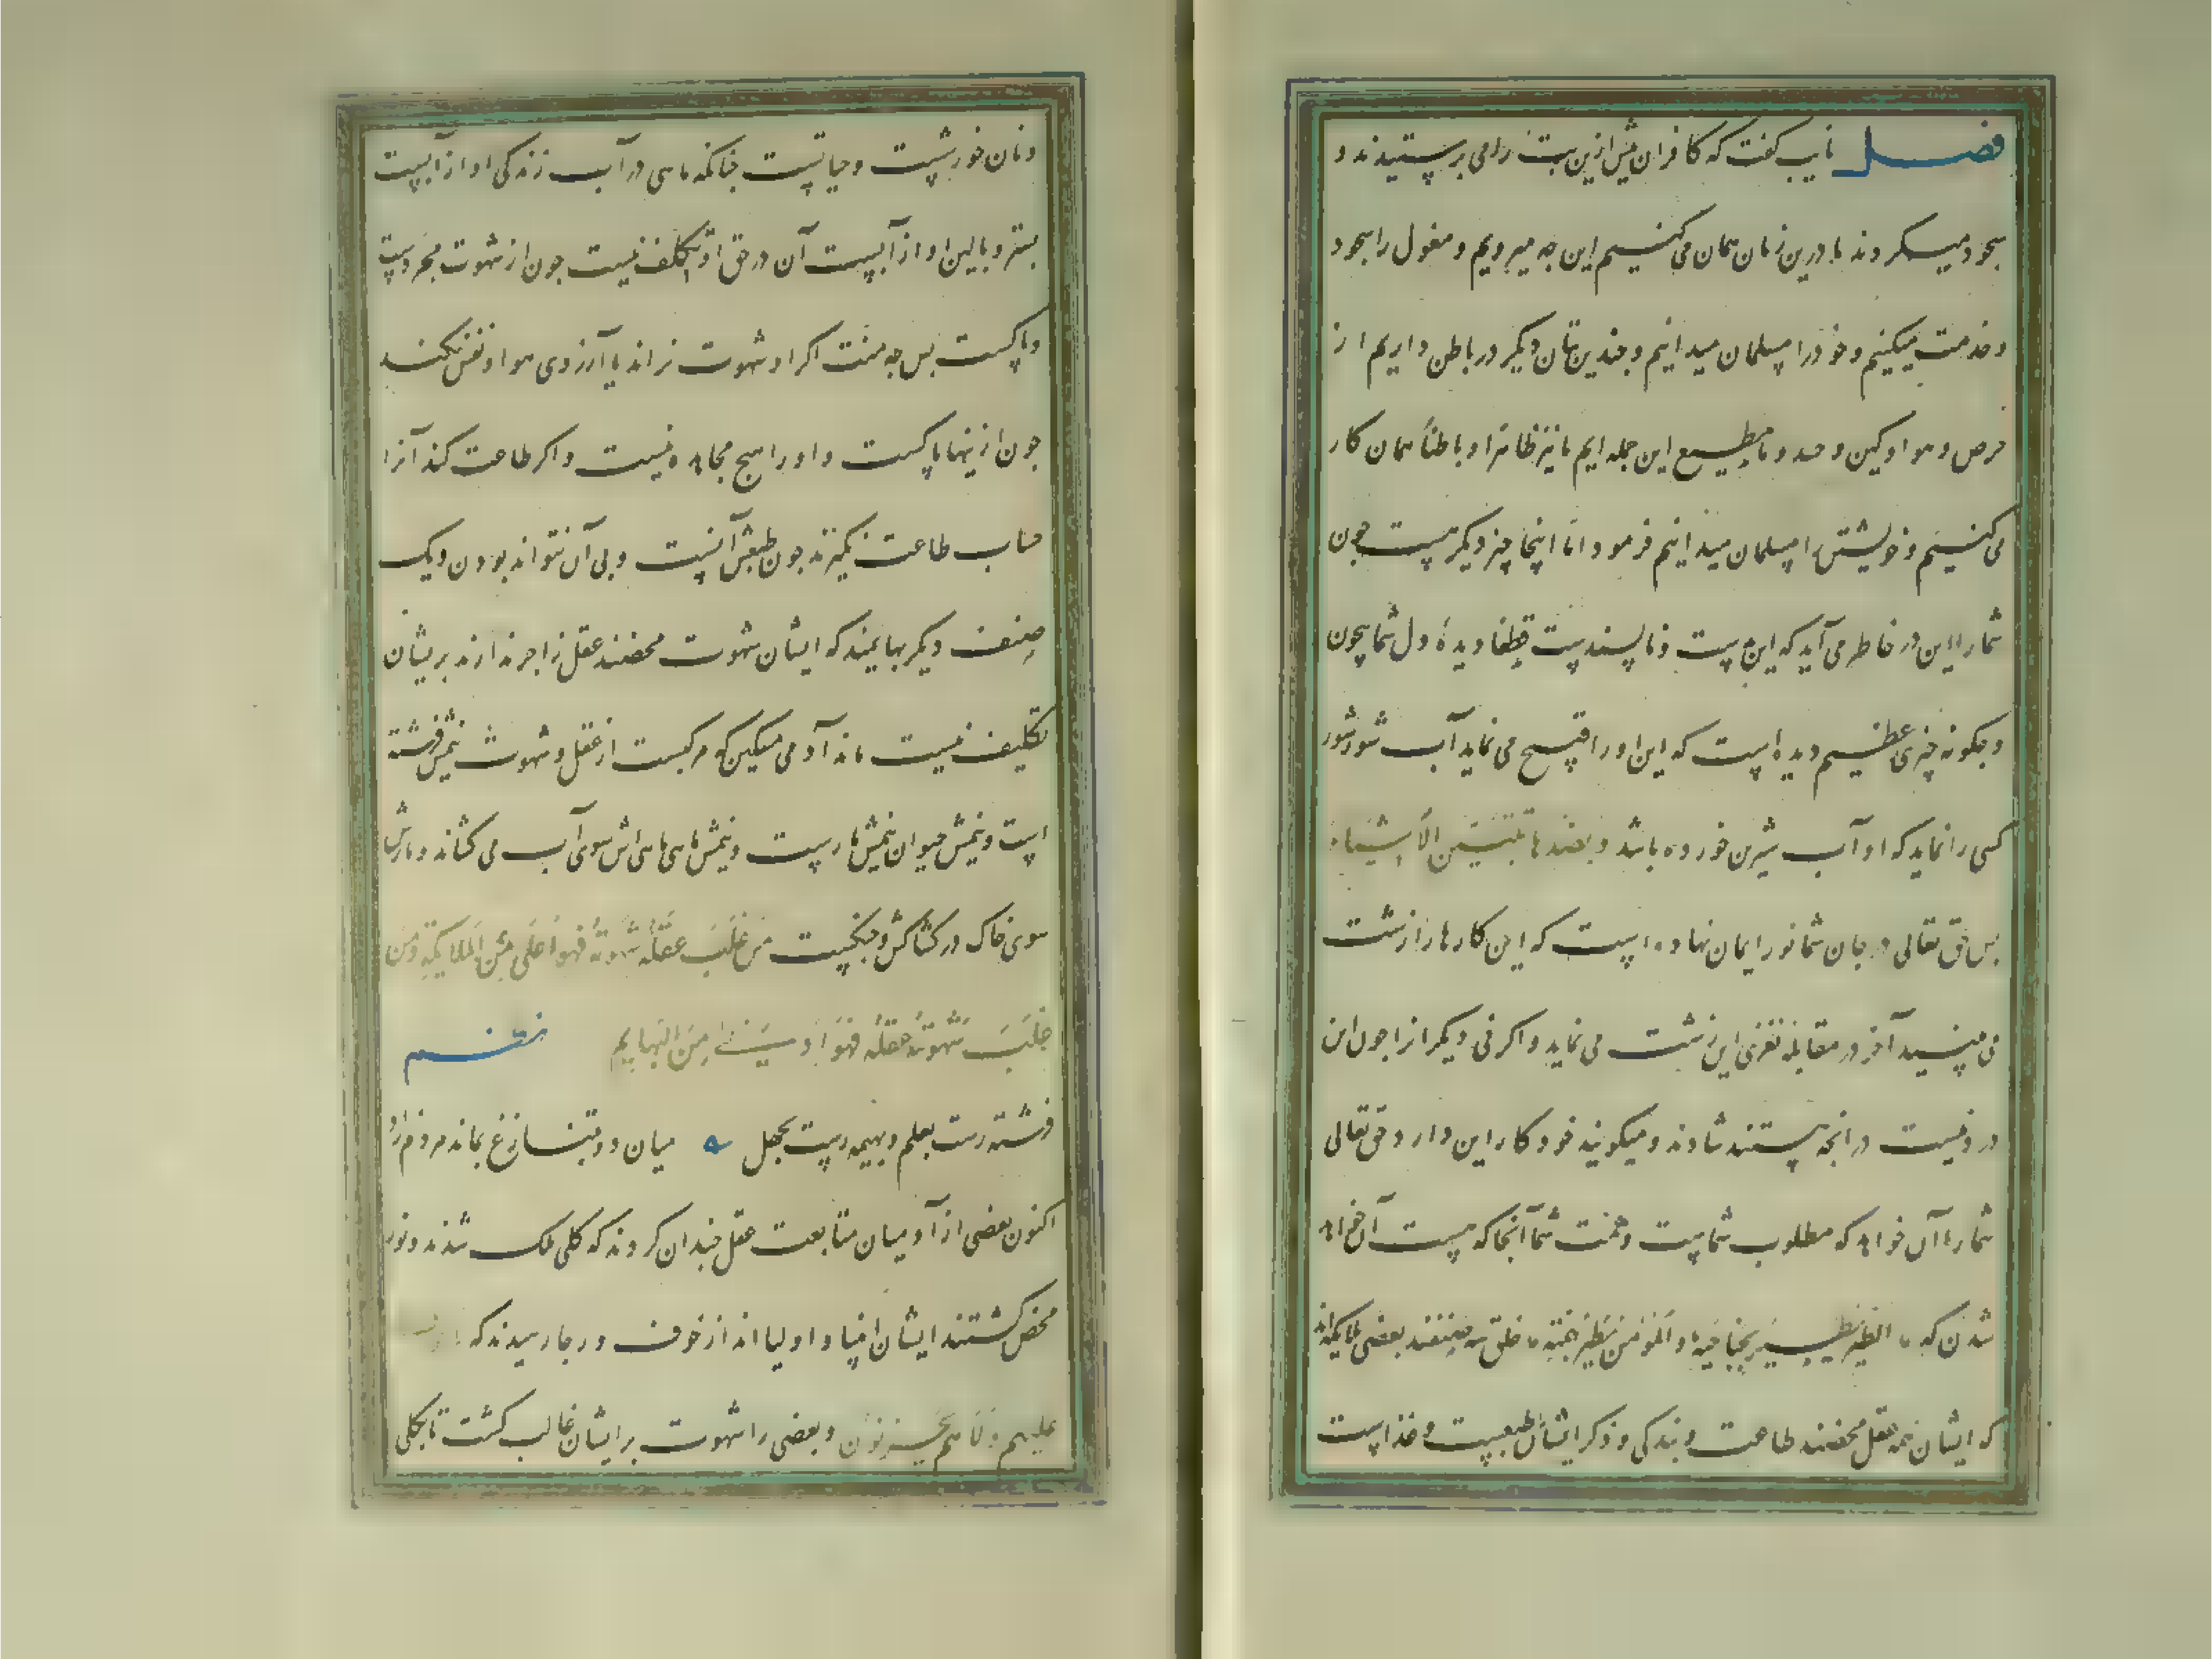 فصل نایب کفت که کافران پیش ازین بت را می پرستیدند و
سجود میکردند ما درین زمان همان می کنیم این چه میرویم و مغول را سجود
و خدمت میکنیم و خود را مسلمان میدانیم و چندین بتان دیکر در باطن داریم از
حرص و هوا و کین و حسد و ما مطیع این جمله ایم ما نیز ظاهرا و باطناً همان کار
می کنیم و خویشتن را مسلمان میدانیم فرمود اما اینجا چیز دیکر هست چون
شما را این در خاطر می آید که این بد است و ناپسند است قطعا دیدهٔ دل شما بیچون
و چکونه چیزی عظیم دیده است که این او را قبیح می نماید آب شور شور
کسی را نماید که او آب شیرین خورده باشد و بضدها تتبین الاشیاء
پس حق تعالی در جان شما نور ایمان نهاده است که این کارها را زشت
می بینید آخر در مقابلهٔ نغزی این زشت می نماید و اکر نی دیکرانرا چون این
درد نیست در آنچه هستند شادند و میکویند خود کار این دارد حق تعالی
شما را آن خواهد که مطلوب شماست و همت شما آنجا که هست آن خواهد
شدن که الطیر یطیر بجناحیه و المؤمن یطیر بهمته خلق سه صنفند بعضی ملایکه اند
که ایشان همه عقل محضند طاعت و بندکی و ذکر ایشان را طبعست و غذاست
و نان خورشست و حیاتست چنانکه ماهی در آب زندکی او از آبست
بستر و بالین او از آبست آن در حق او تکلف نیست چون از شهوت مجردست
و پاکست پس چه منت اکر او شهوت نراند یا آرزوی هوا و نفس نکند
چون ازینها پاکست و او را هیچ مجاهده نیست و اکر طاعت کند آنرا
حساب طاعت نکیرند چون طبعش آنست و بی آن نتواند بودن و یک
صنف دیکر بهایمند که ایشان شهوت محضند عقل زاجر ندارند بریشان
تکلیف نیست ماند آدمی مسکین که مرکبست از عقل و شهوت نیمش فرشته
است و نیمش حیوان نیمش مارست و نیمش ماهی ماهی اش سوی آب می کشاند و مارش
سوی خاک در کشاکش و جنکست من غلب عقله شهوته فهو اعلی من الملایکة و من
غلب شهوته عقله فهو ادنی من البهایم
فرشته رست بعلم و بهیمه رست بجهل میان دو بتنازع بماند مردم زاد
اکنون بعضی از آدمیان متابعت عقل چندان کردند که کلی ملک شدند و نور
محض کشتند ایشان انبیا و اولیا اند از خوف و رجا رهیدند که
علیهم و لا هم یحزنون و بعضی را شهوت بر ایشان غالب کشت تا بکلی